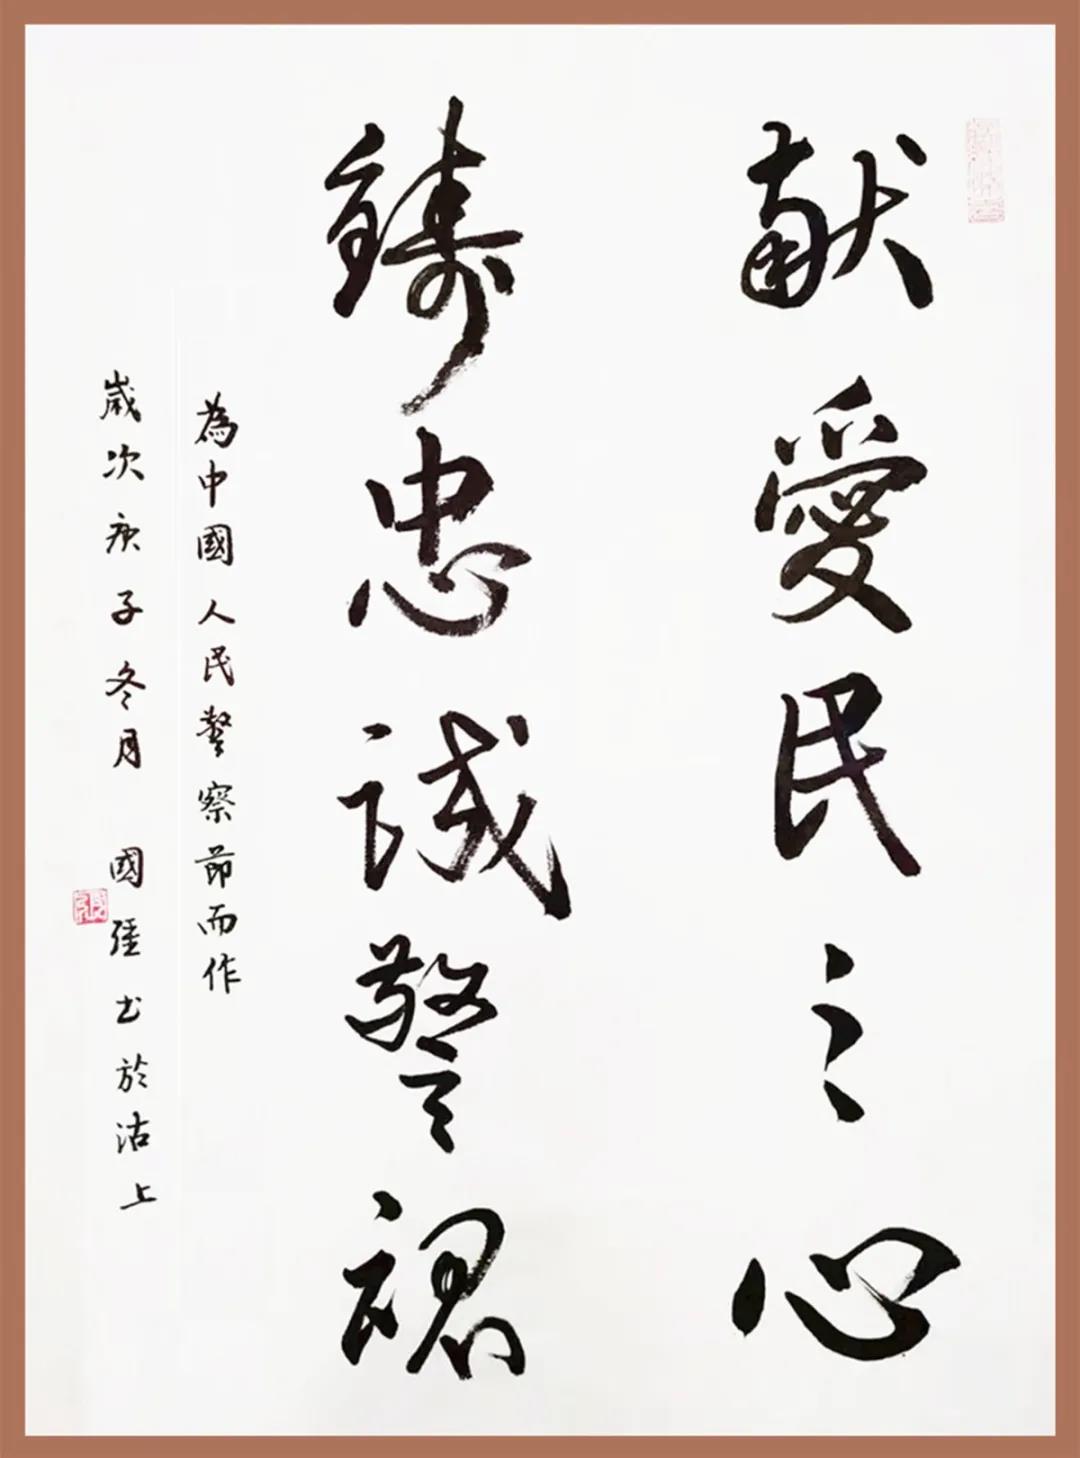 献愛民之心
鑄忠誠警魂
為中國人民警察節而作
歲次庚子冬月 國彊书於沽上